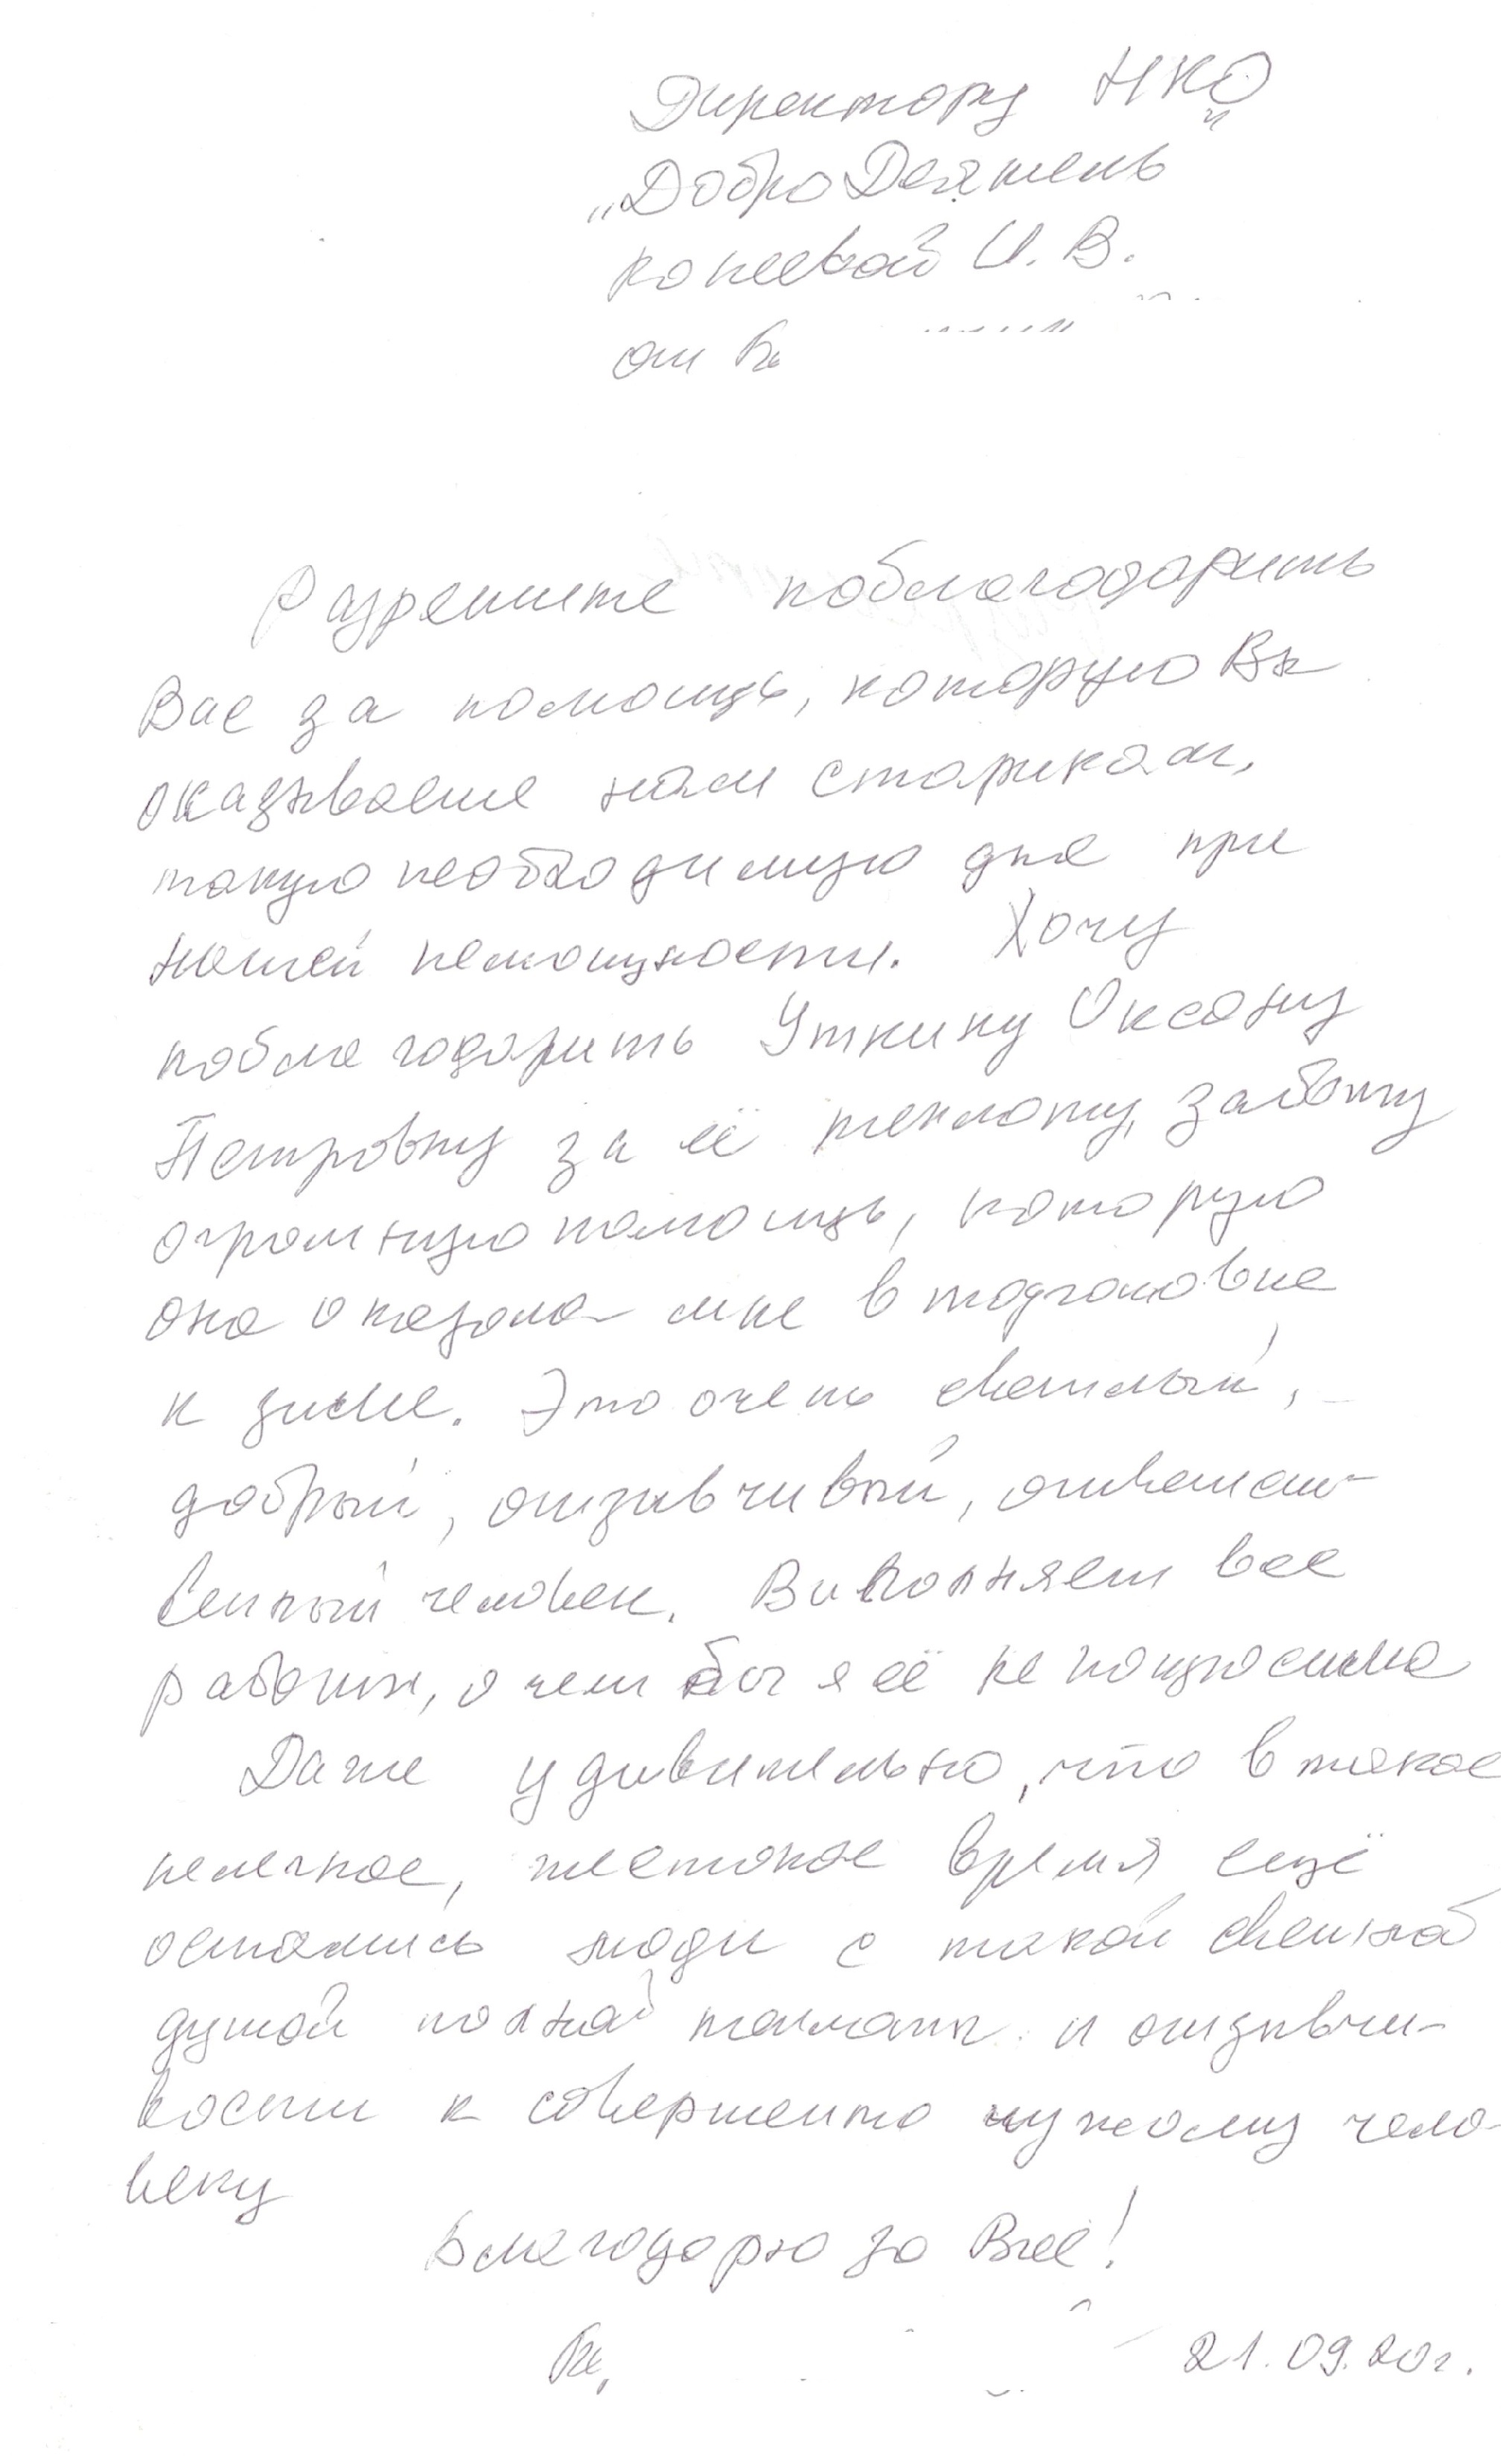 Директору НКО
„ДоброДеятель"
Конеевой И. В.
от
Разрешите поблагодарить
Вас за помощь, которую Вы
оказываете нам старикам,
такую необходимую для при
нашей немощности. Хочу
поблагодарить Уткину Оксану
Петровну за её теплоту, заботу
огромную помощь, которую
она оказала мне в подготовке
к зиме. Это очень светлый,
добрый, отзывчивый, ответст-
венный человек. Выполняет все
работы, о чем бы я её не попросила
Даже удивительно, что в такое
нелегкое, жестокое время ещё
остались люди с такой светлой
душой полной теплоты и отзывчи-
вости к совершенно чужому чело-
веку
Благодарю за Все!
21.09.20г.